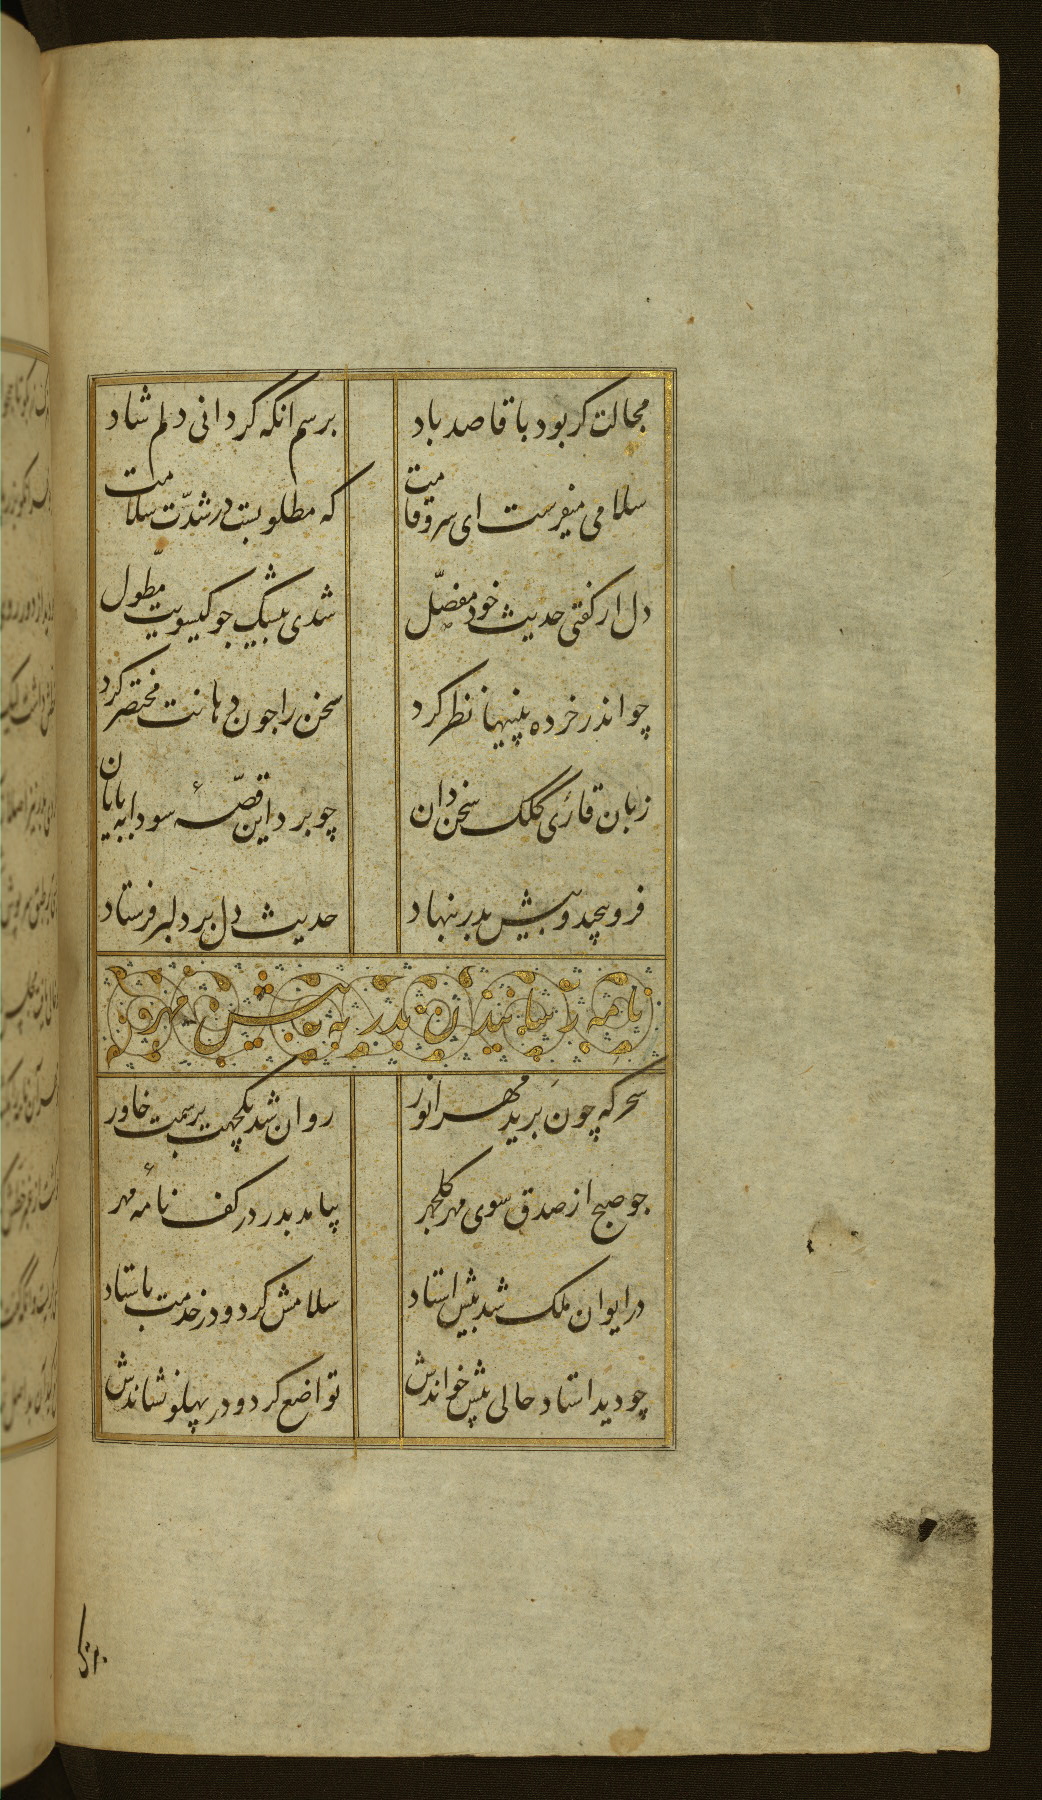 مجالت کر بود با قاصد باد
برسم انکه کردانی دلم شاد
سلامی میفرست ای سروقامت
که مطلوبست در شدّت سلامت
دل ار کفتی حدیث خود مفصّل
شدی بیشک جو کیسویت مطّول
چو اندر خرده بینیها نظر کرد
سخن را جون دهانت مختصر کرد
زبان قارئ کلک سخن دان
چو برد این قصّهٔ سودا بپایان
فرو پیچید و پیش بدر بنهاد
حدیث دل بر دلبر فرستاد
نامه رسانیدن بدر به پیش مهر
سحرکه چون برید مهر انور
روان شد یکجهت بر سمت خاور
جو صبح از صدق سوی مهر کلجهر
بیامد بدر در کف نامهٔ مهر
در ایوان ملک شد پیش استاد
سلامش کرد و در خدمت باستاد
چو دید استاد حالی پیش خواندش
تواضع کرد و در پهلو نشاندش